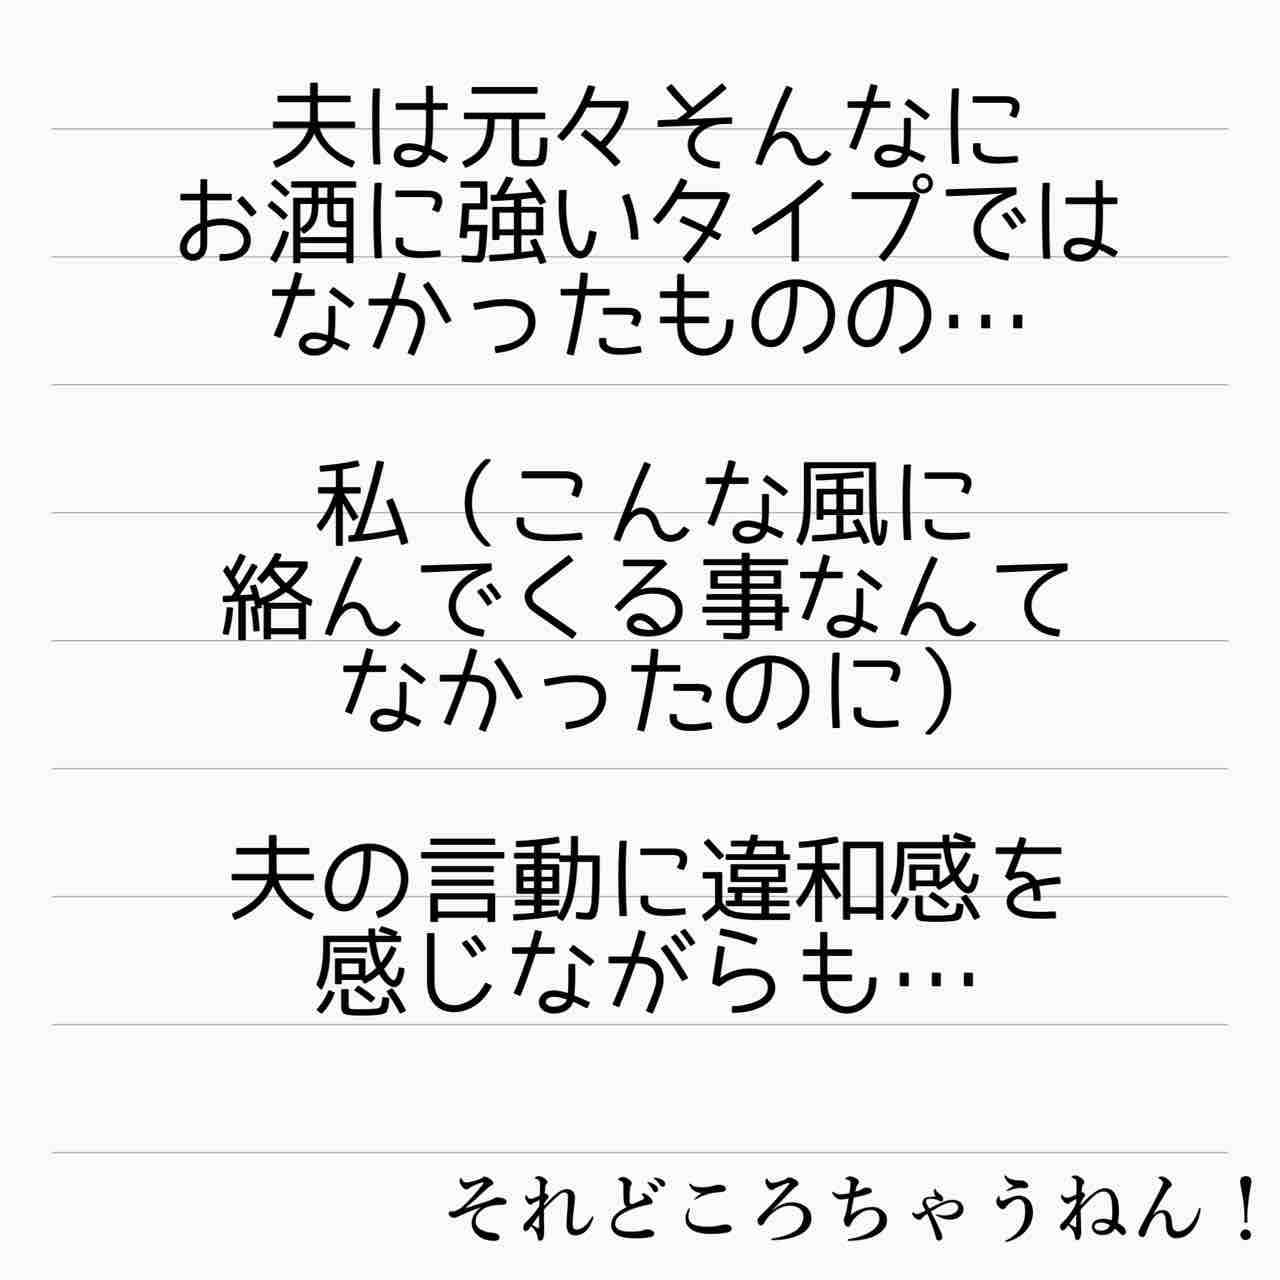 夫は元々そんなに
お酒に強いタイプでは
なかったものの…
私（こんな風に
絡んでくる事なんて
なかったのに）
夫の言動に違和感を
感じながらも…
それどころちゃうねん！